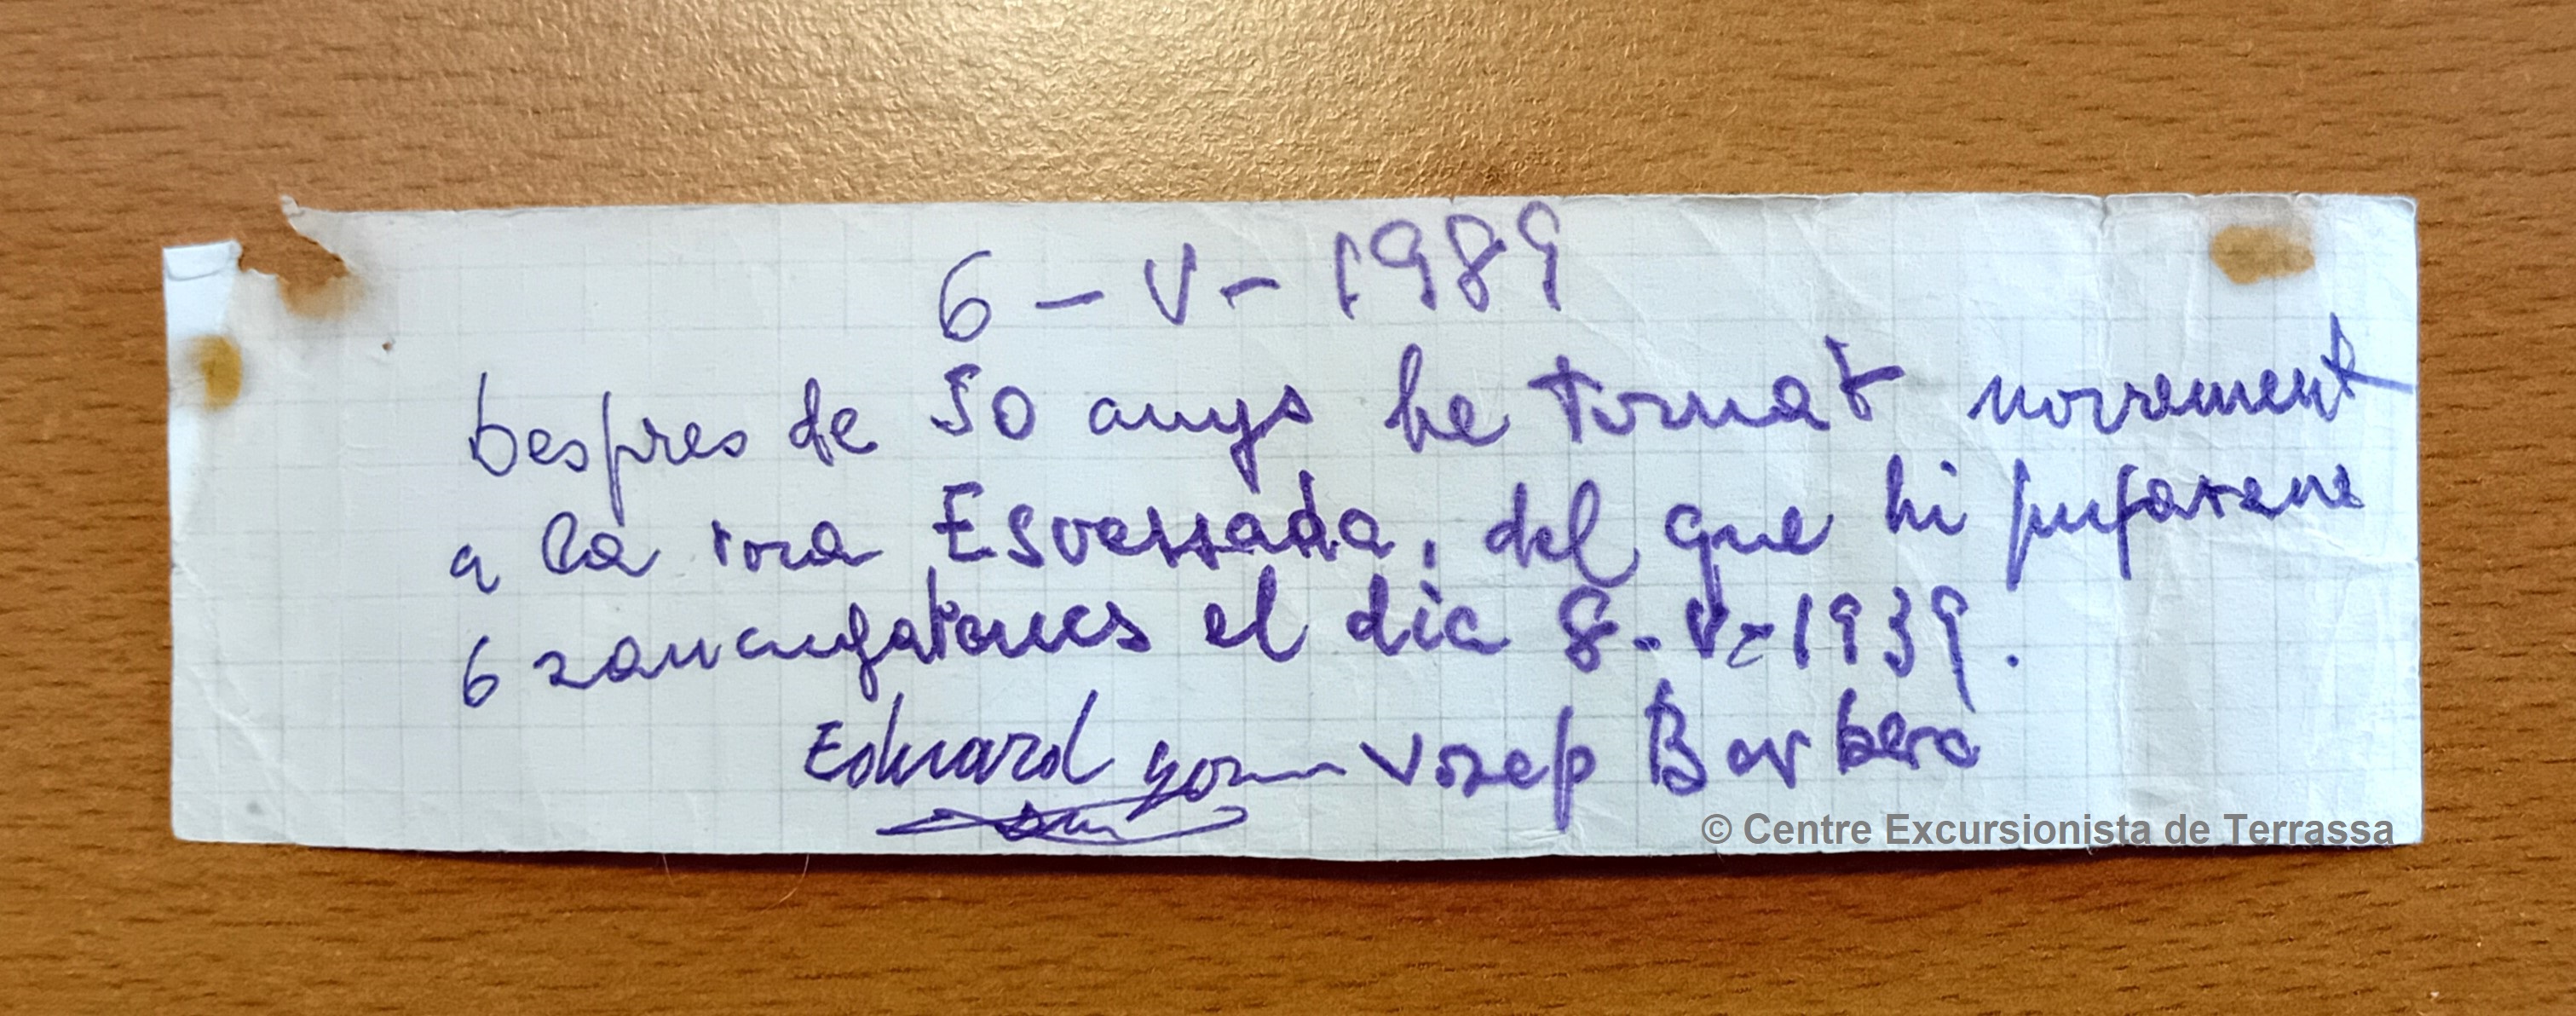 6 - V - 1989
Despres de 50 anys he tornat novament
a la roca Esvessada, del que hi pujarene
6 sancugatones el dia 8-V-1939.
Eduard Josep Barbera
© Centre Excursionista de Terrassa